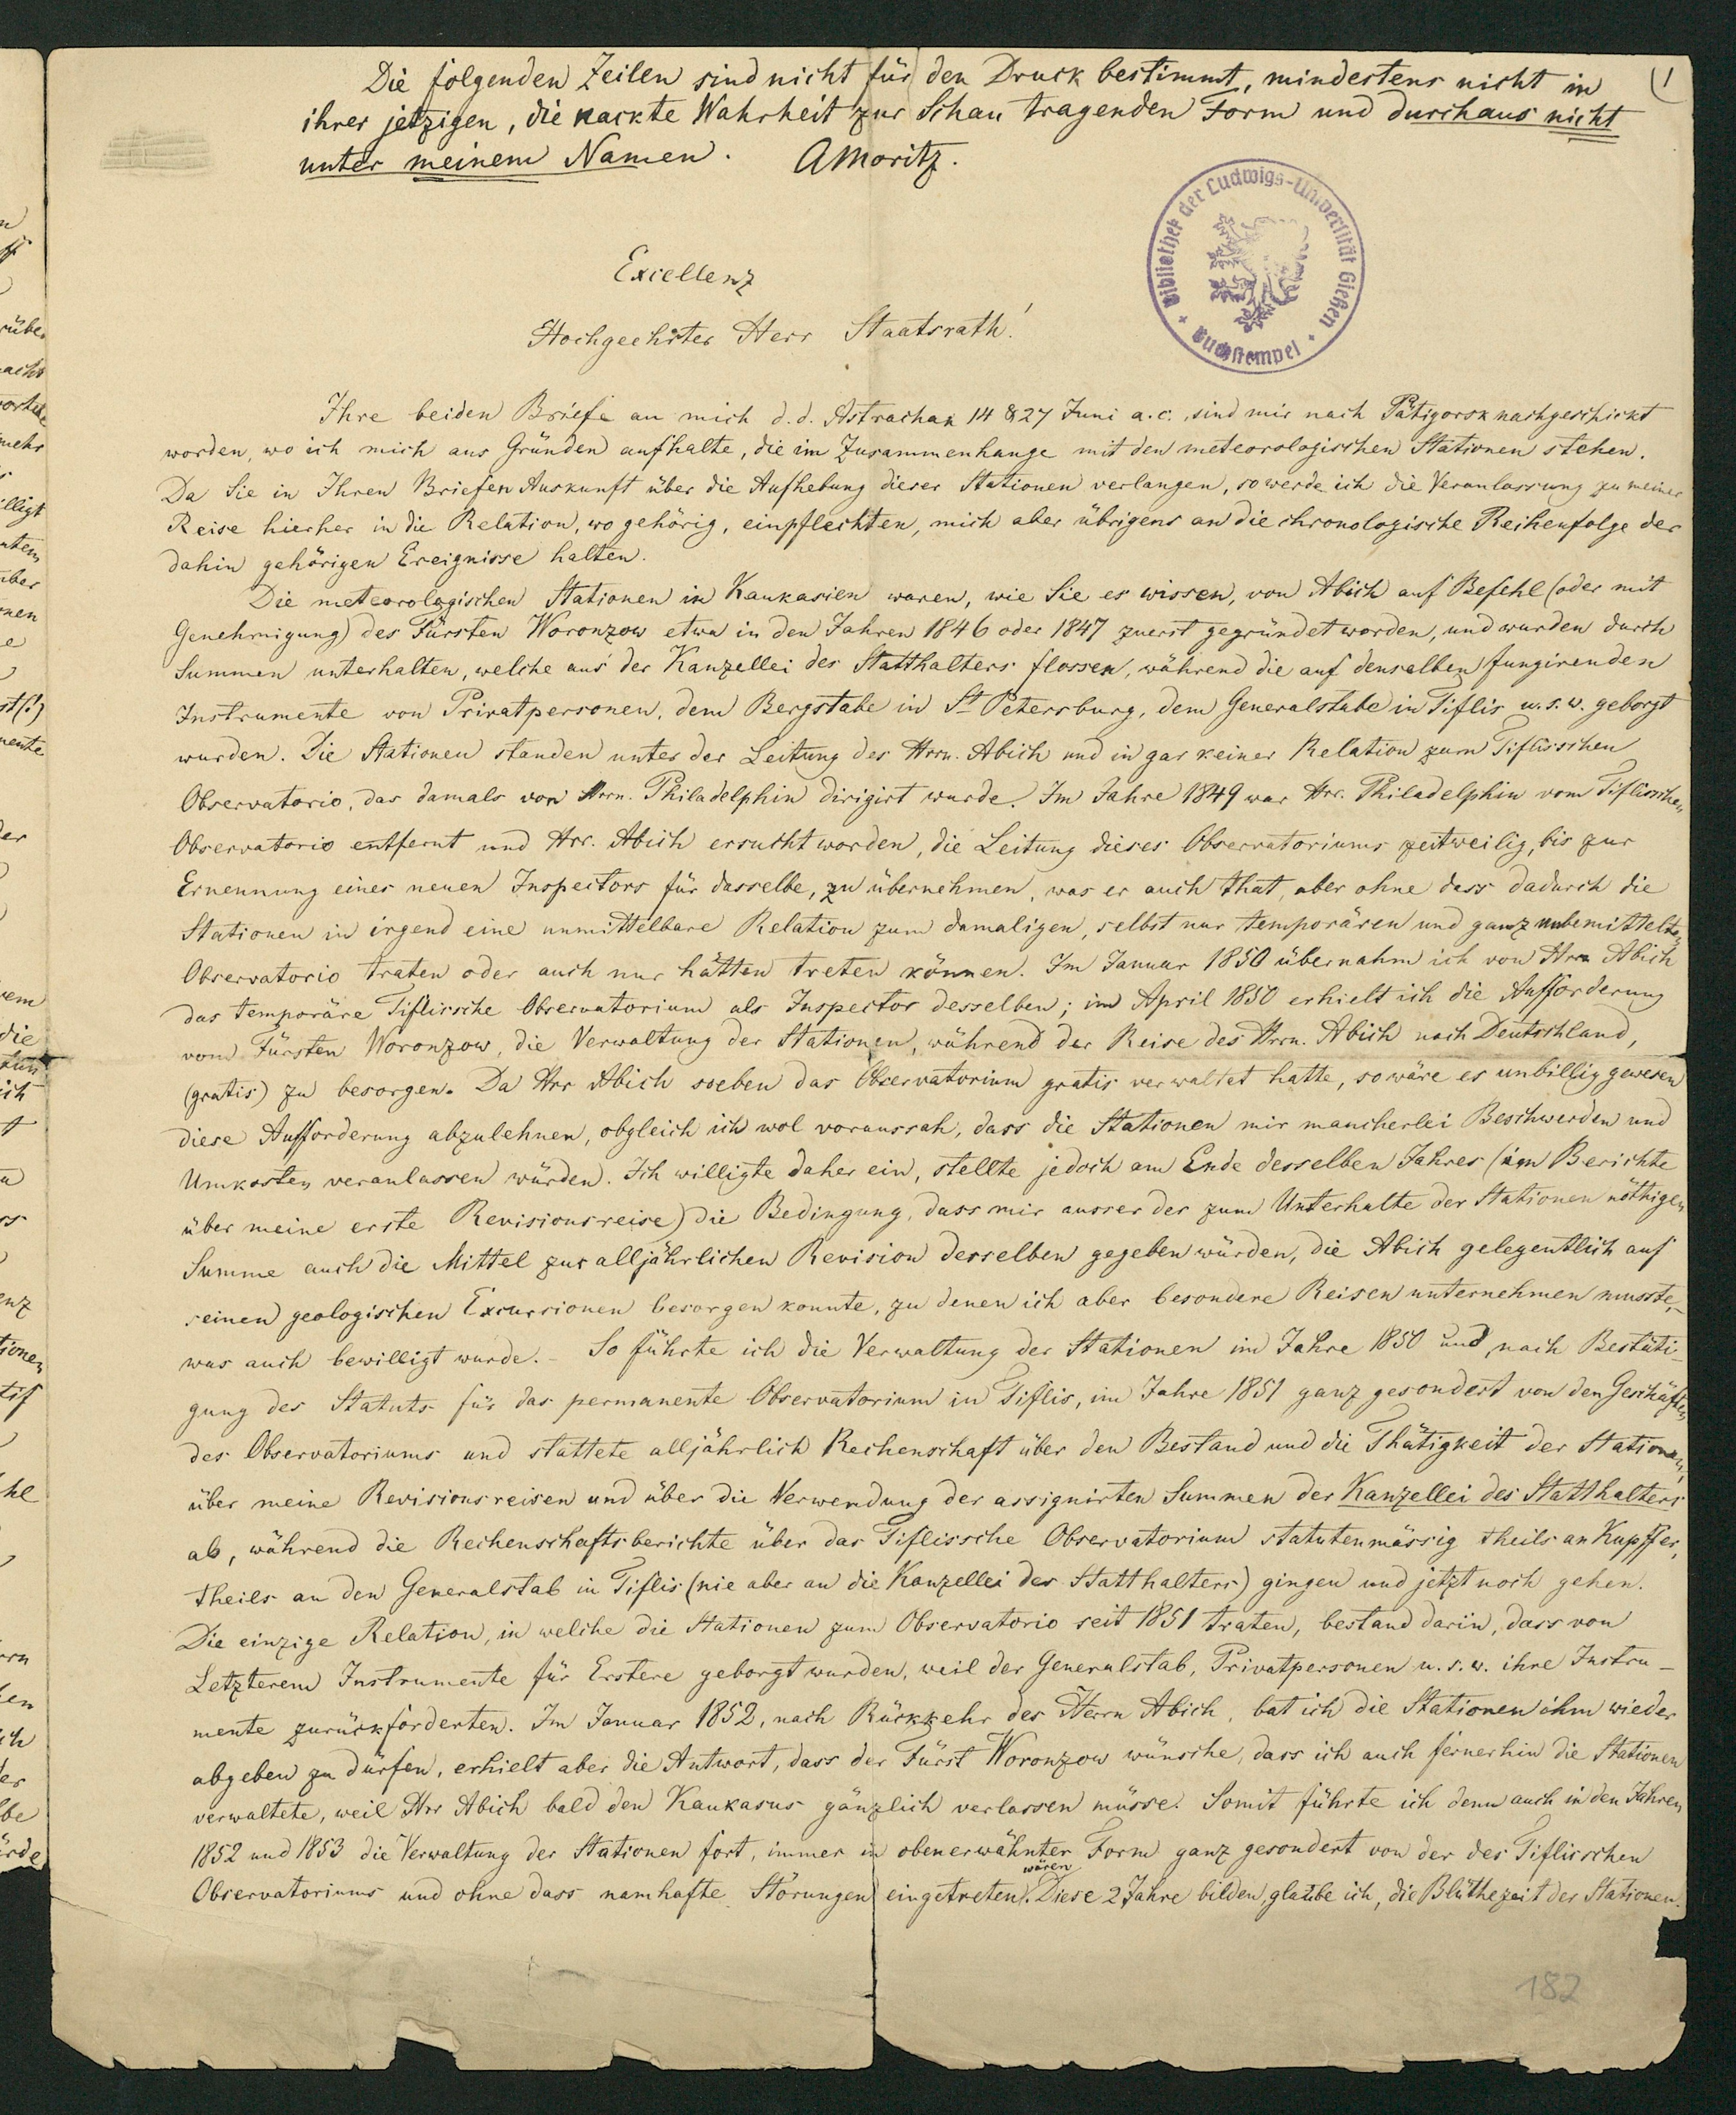 Die folgenden Zeilen sind nicht für den Druck bestimmt, mindestens nicht in
(1
ihrer jetzigen, die nackte Wahrheit zur Schau tragenden Form und durchaus nicht
unter meinem Namen. AMoritz.
Bibliothek der Ludwigs-Universität Gießen + Buchstempel +
Excellenz
Hochgeehrter Herr Staatsrath!
Ihre beiden Briefe an mich d. d. Astrachan 14 & 27 Juni a. c. sind mir nach Pätigorsk nachgeschickt
worden, wo ich mich aus Gründen aufhalte, die im Zusammenhange mit den meteorologischen Stationen stehen.
Da Sie in Ihren Briefen Auskunft über die Aufhebung dieser Stationen verlangen, so werde ich die Veranlassung zu meiner
Reise hierher in die Relation, wo gehörig, einpflechten, mich aber übrigens an die chronologische Reihenfolge der
dahin gehörigen Ereignisse halten.
Die meteorologischen Stationen in Kaukasien waren, wie Sie es wissen, von Abich auf Befehl (oder mit
Genehmigung) des Fürsten Woronzow etwa in den Jahren 1846 oder 1847 zuerst gegründet worden, und wurden durch
Summen unterhalten, welche aus der Kanzellei des Statthalters flossen, während die auf denselben fungirenden
Instrumente von Privatpersonen, dem Bergstabe in St Petersburg, dem Generalstabe in Tiflis u. s. w. geborgt
wurden. Die Stationen standen unter der Leitung des Hrrn. Abich und in gar keiner Relation zum Tiflisschen
Observatorio, das damals von Hrrn. Philadelphin dirigirt wurde. Im Jahre 1849 war Hrr. Philadelphin vom Tiflisschen
Observatorio entfernt und Hrr. Abich ersucht worden, die Leitung dieses Observatoriums zeitweilig, bis zur
Ernennung eines neuen Inspectors für dasselbe, zu übernehmen, was er auch that, aber ohne dass dadurch die
Stationen in irgend eine unmittelbare Relation zum damaligen, selbst nur temporären und ganz unbemittelten
Observatorio traten oder auch nur hätten treten können. Im Januar 1850 übernahm ich von Hrrn Abich
das temporäre Tiflissche Observatorium als Inspector desselben; im April 1850 erhielt ich die Aufforderung
vom Fürsten Woronzow, die Verwaltung der Stationen, während der Reise des Hrrn. Abich nach Deutschland,
(gratis) zu besorgen. Da Hrr Abich soeben das Observatorium gratis verwaltet hatte, so wäre es unbillig gewesen
diese Aufforderung abzulehnen, obgleich ich wol voraussah, dass die Stationen mir mancherlei Beschwerden und
Unkosten veranlassen würden. Ich willigte daher ein, stellte jedoch am Ende desselben Jahres (im Berichte
über meine erste Revisionsreise) die Bedingung, dass mir ausser der zum Unterhalte der Stationen nöthigen
Summe auch die Mittel zur alljährlichen Revision derselben gegeben würden, die Abich gelegentlich auf
seinen geologischen Excursionen besorgen konnte, zu denen ich aber besondere Reisen unternehmen musste,–
was auch bewilligt wurde. – So führte ich die Verwaltung der Stationen im Jahre 1850 und, nach Bestäti-
gung des Statuts für das permanente Observatorium in Tiflis, im Jahre 1851 ganz gesondert von den Geschäften
des Observatoriums und stattete alljährlich Rechenschaft über den Bestand und die Thätigkeit der Stationen,
über meine Revisionsreisen und über die Verwendung der assignirten Summen der Kanzellei des Statthalters
ab, während die Rechenschaftsberichte über das Tiflissche Observatorium statutenmässig theils an Kupffer,
theils an den Generalstab in Tiflis (nie aber an die Kanzellei des Statthalters) gingen und jetzt noch gehen.
Die einzige Relation, in welche die Stationen zum Observatorio seit 1851 traten, bestand darin, dass von
Letzterem Instrumente für Erstere geborgt wurden, weil der Generalstab, Privatpersonen u. s. w. ihre Instru-
mente zurückforderten. Im Januar 1852, nach Rückkehr des Herrn Abich, bat ich die Stationen ihm wieder
abgeben zu dürfen, erhielt aber die Antwort, dass der Fürst Woronzow wünsche, dass ich auch fernerhin die Stationen
verwaltete, weil Hrr Abich bald den Kaukasus gänzlich verlassen müsse. Somit führte ich denn auch in den Jahren
1852 und 1853 die Verwaltung der Stationen fort, immer in obenerwähnter Form ganz gesondert von der des Tiflisschen
Observatoriums und ohne dass namhafte Störungen eingetreten wären. Diese 2 Jahre bilden, glaube ich, die Blüthezeit der Stationen.
182